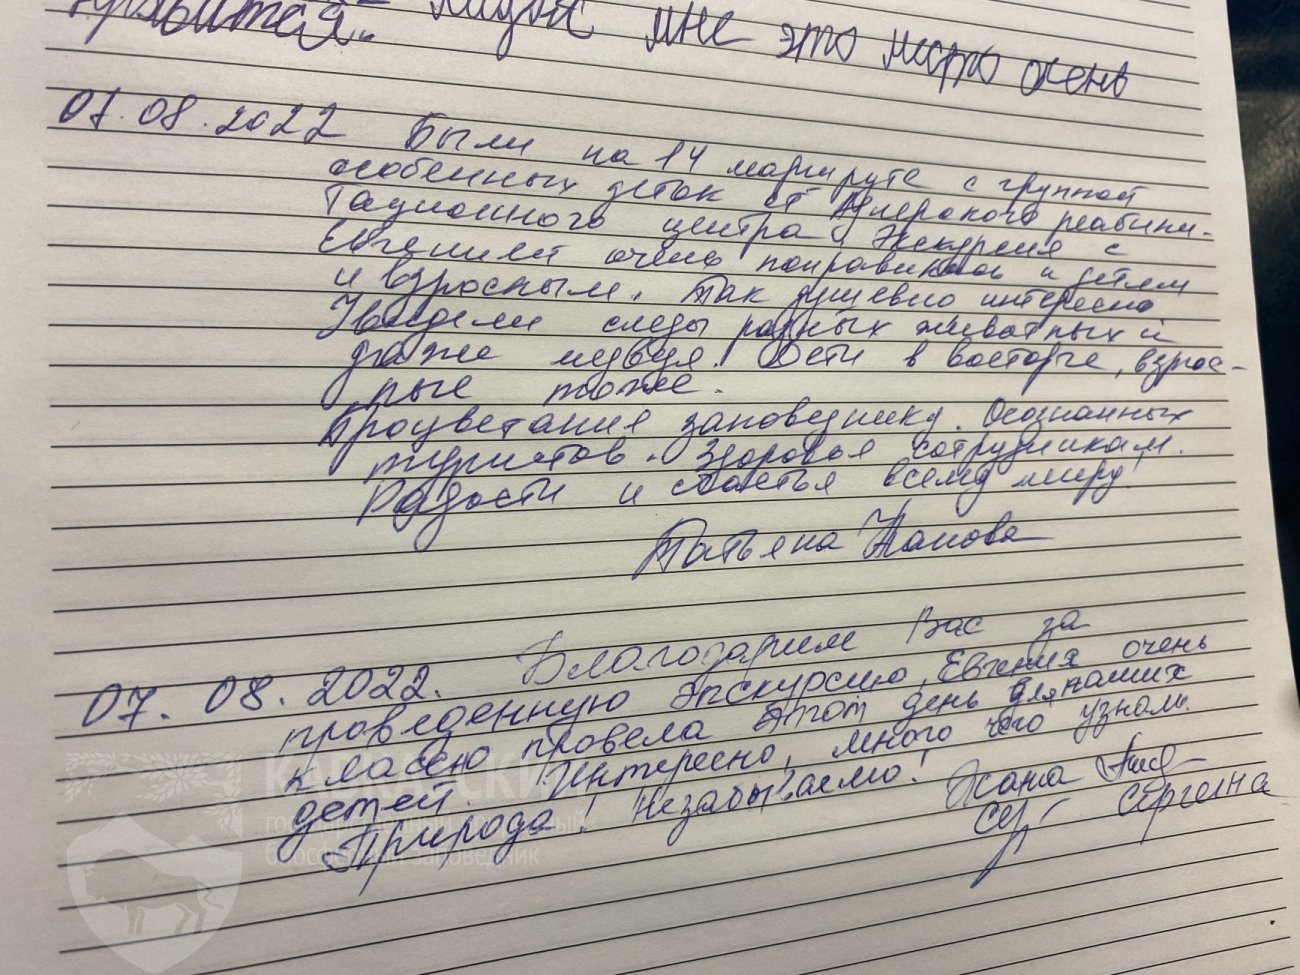 мне это место очень
нравится.
07.08.2022 Были на 14 маршруте с группой
особенных деток от Адлерского реабили-
тационного центра. Экскурсия с
Евгенией очень понравилась и детям
и взрослым. Так душевно интересно
Увидели следы разных животных и
даже медведя. Дети в восторге, взрос-
лые тоже.
Процветания заповеднику. Осознанных
туристов. Здоровья сотрудникам.
Радости и счастья всему миру!
Татьяна
07.08.2022. Благодарим Вас за
проведенную экскурсию, Евгения очень
классно провела этот день для наших
детей. Интересно, много чего узнали.
Природа! Незабываемо!
Сергеевна
КАВКАЗСКИЙ
государственный природный
биосферный заповедник